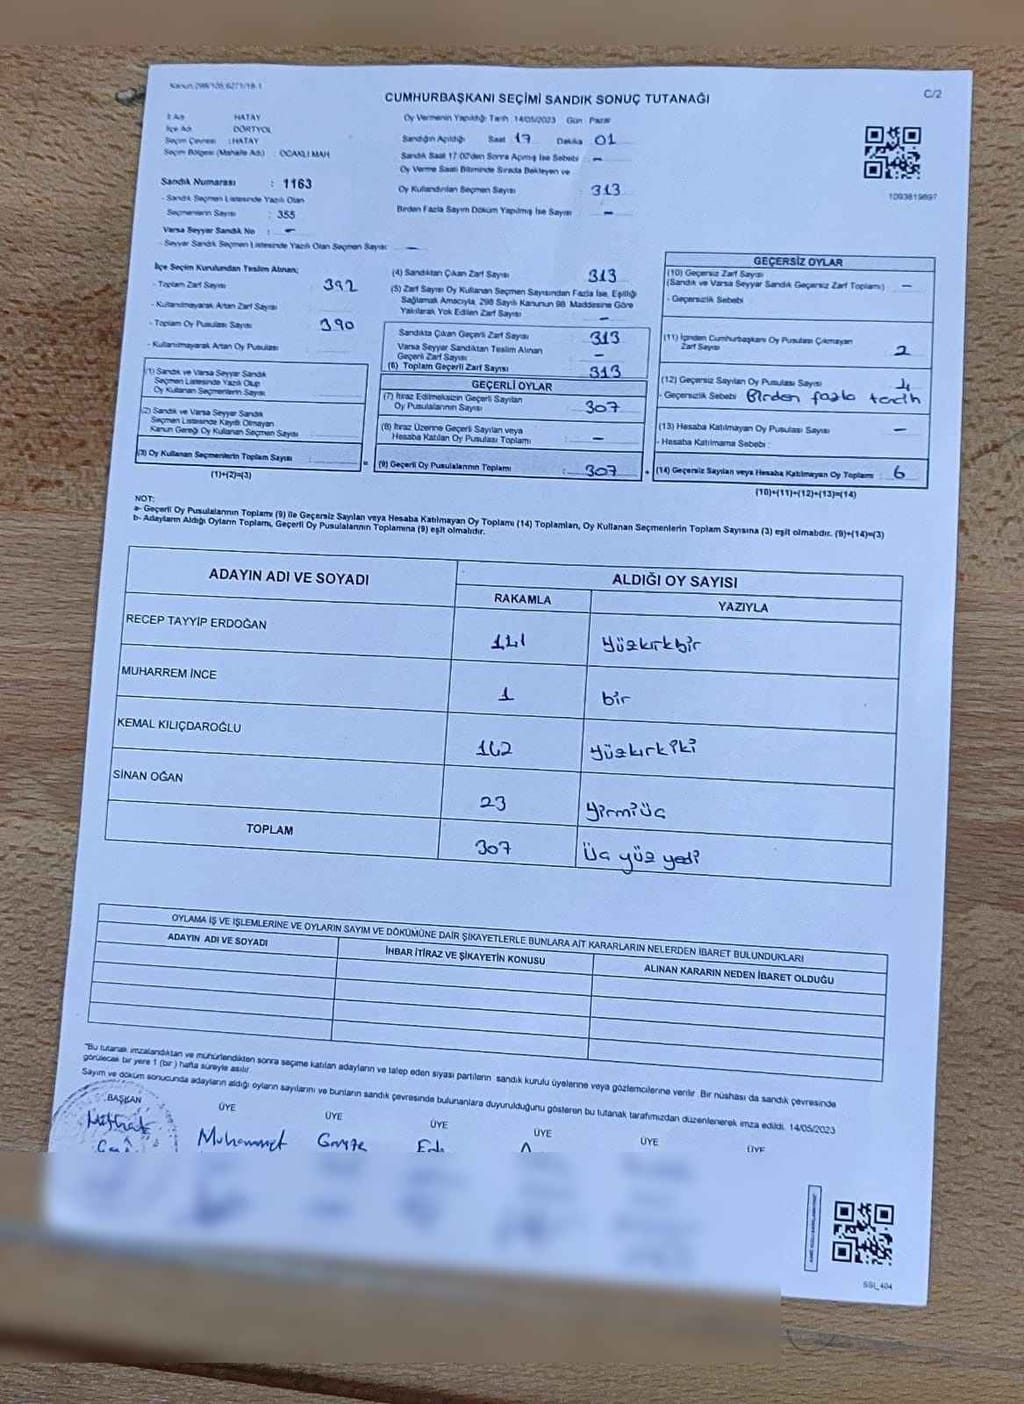 Kanun:298/105;6271/18-1
CUMHURBAŞKANI SEÇİMİ SANDIK SONUÇ TUTANAĞI
C/2
İl Adı : HATAY
İlçe Adı : DÖRTYOL
Seçim Çevresi : HATAY
Seçim Bölgesi (Mahalle Adı) : OCAKLI MAH
Sandık Numarası : 1163
- Sandık Seçmen Listesinde Yazılı Olan
Seçmenlerin Sayısı : 355
Varsa Seyyar Sandık No : -
- Seyyar Sandık Seçmen Listesinde Yazılı Olan Seçmen Sayısı: -
Oy Vermenin Yapıldığı Tarih : 14/05/2023 Gün : Pazar
Sandığın Açıldığı Saat 17 Dakika 01
Sandık Saat 17:00'den Sonra Açılmış İse Sebebi -
Oy Verme Saati Bitiminde Sırada Bekleyen ve
Oy Kullandırılan Seçmen Sayısı 313
Birden Fazla Sayım Döküm Yapılmış İse Sayısı -
1093819897
İlçe Seçim Kurulundan Teslim Alınan;
- Toplam Zarf Sayısı 392
- Kullanılmayarak Artan Zarf Sayısı
- Toplam Oy Pusulası Sayısı 390
- Kullanılmayarak Artan Oy Pusulası
(1) Sandık ve Varsa Seyyar Sandık
Seçmen Listesinde Yazılı Olup
Oy Kullanan Seçmenlerin Sayısı
(2) Sandık ve Varsa Seyyar Sandık
Seçmen Listesinde Kayıtlı Olmayan
Kanun Gereği Oy Kullanan Seçmen Sayısı
(3) Oy Kullanan Seçmenlerin Toplam Sayısı
(1)+(2)=(3)
(4) Sandıktan Çıkan Zarf Sayısı 313
(5) Zarf Sayısı Oy Kullanan Seçmen Sayısından Fazla İse, Eşitliği
Sağlamak Amacıyla, 298 Sayılı Kanunun 98. Maddesine Göre
Yakılarak Yok Edilen Zarf Sayısı -
Sandıkta Çıkan Geçerli Zarf Sayısı 313
Varsa Seyyar Sandıktan Teslim Alınan
Geçerli Zarf Sayısı -
(6) Toplam Geçerli Zarf Sayısı 313
GEÇERLİ OYLAR
(7) İtiraz Edilmeksizin Geçerli Sayılan
Oy Pusulalarının Sayısı 307
(8) İtiraz Üzerine Geçerli Sayılan veya
Hesaba Katılan Oy Pusulası Toplamı -
= (9) Geçerli Oy Pusulalarının Toplamı : 307
GEÇERSİZ OYLAR
(10) Geçersiz Zarf Sayısı
(Sandık ve Varsa Seyyar Sandık Geçersiz Zarf Toplamı) -
- Geçersizlik Sebebi
(11) İçinden Cumhurbaşkanı Oy Pusulası Çıkmayan
Zarf Sayısı 2
(12) Geçersiz Sayılan Oy Pusulası Sayısı 4
- Geçersizlik Sebebi Birden fazla tercih
(13) Hesaba Katılmayan Oy Pusulası Sayısı -
- Hesaba Katılmama Sebebi :
+ (14) Geçersiz Sayılan veya Hesaba Katılmayan Oy Toplamı : 6
(10)+(11)+(12)+(13)=(14)
NOT:
a- Geçerli Oy Pusulalarının Toplamı (9) ile Geçersiz Sayılan veya Hesaba Katılmayan Oy Toplamı (14) Toplamları, Oy Kullanan Seçmenlerin Toplam Sayısına (3) eşit olmalıdır. (9)+(14)=(3)
b- Adayların Aldığı Oyların Toplamı, Geçerli Oy Pusulalarının Toplamına (9) eşit olmalıdır.
ADAYIN ADI VE SOYADI ALDIĞI OY SAYISI
RAKAMLA YAZIYLA
RECEP TAYYİP ERDOĞAN 141 Yüzkırkbir
MUHARREM İNCE 1 bir
KEMAL KILIÇDAROĞLU 142 Yüzkırkiki
SİNAN OĞAN 23 Yirmiüç
TOPLAM 307 Üç yüz yedi
OYLAMA İŞ VE İŞLEMLERİNE VE OYLARIN SAYIM VE DÖKÜMÜNE DAİR ŞİKAYETLERLE BUNLARA AİT KARARLARIN NELERDEN İBARET BULUNDUKLARI
ADAYIN ADI VE SOYADI İHBAR İTİRAZ VE ŞİKAYETİN KONUSU ALINAN KARARIN NEDEN İBARET OLDUĞU
"Bu tutanak imzalandıktan ve mühürlendikten sonra seçime katılan adayların ve talep eden siyasi partilerin sandık kurulu üyelerine veya gözlemcilerine verilir. Bir nüshası da sandık çevresinde
görülecek bir yere 1 (bir) hafta süreyle asılır.
Sayım ve döküm sonucunda adayların aldığı oyların sayılarını ve bunların sandık çevresinde bulunanlara duyurulduğunu gösteren bu tutanak tarafımızdan düzenlenerek imza edildi. 14/05/2023
BAŞKAN ÜYE ÜYE ÜYE ÜYE ÜYE ÜYE
Muhammet
SSI_404